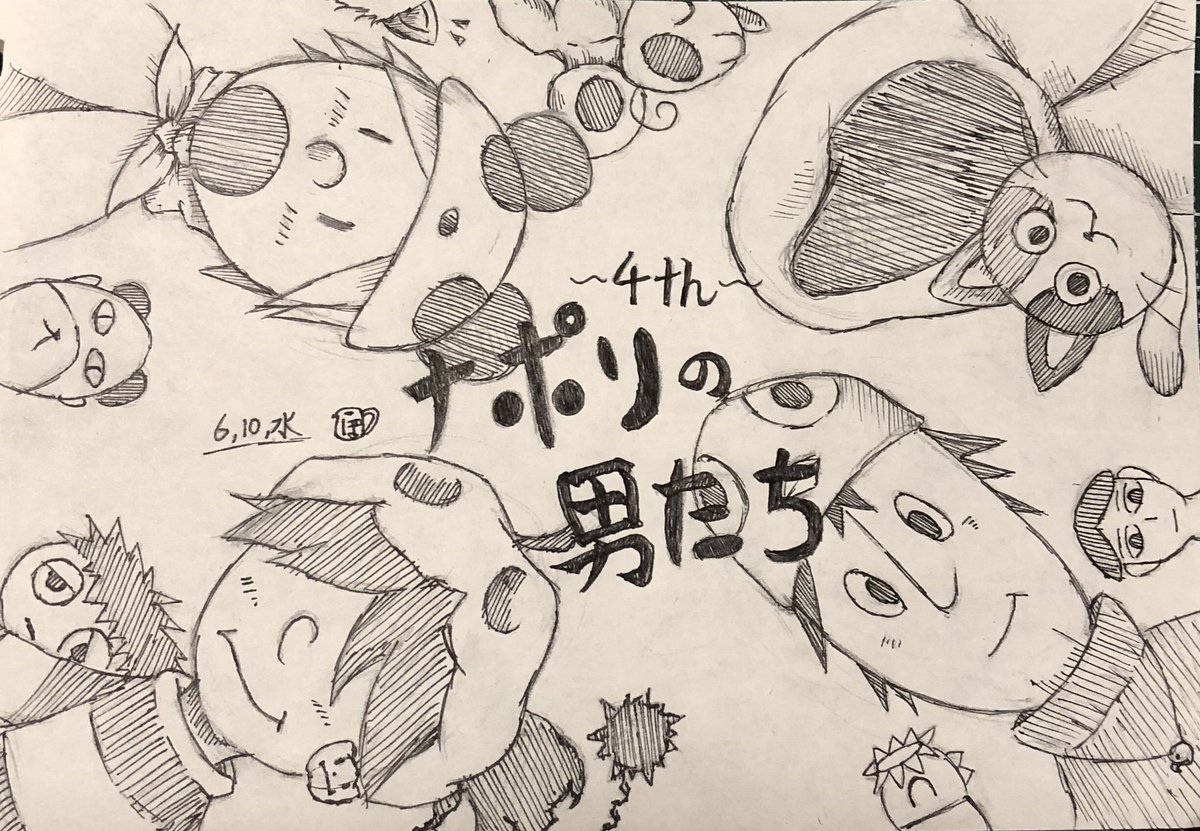 ~4th~
ナポリの
男たち
6,10,水